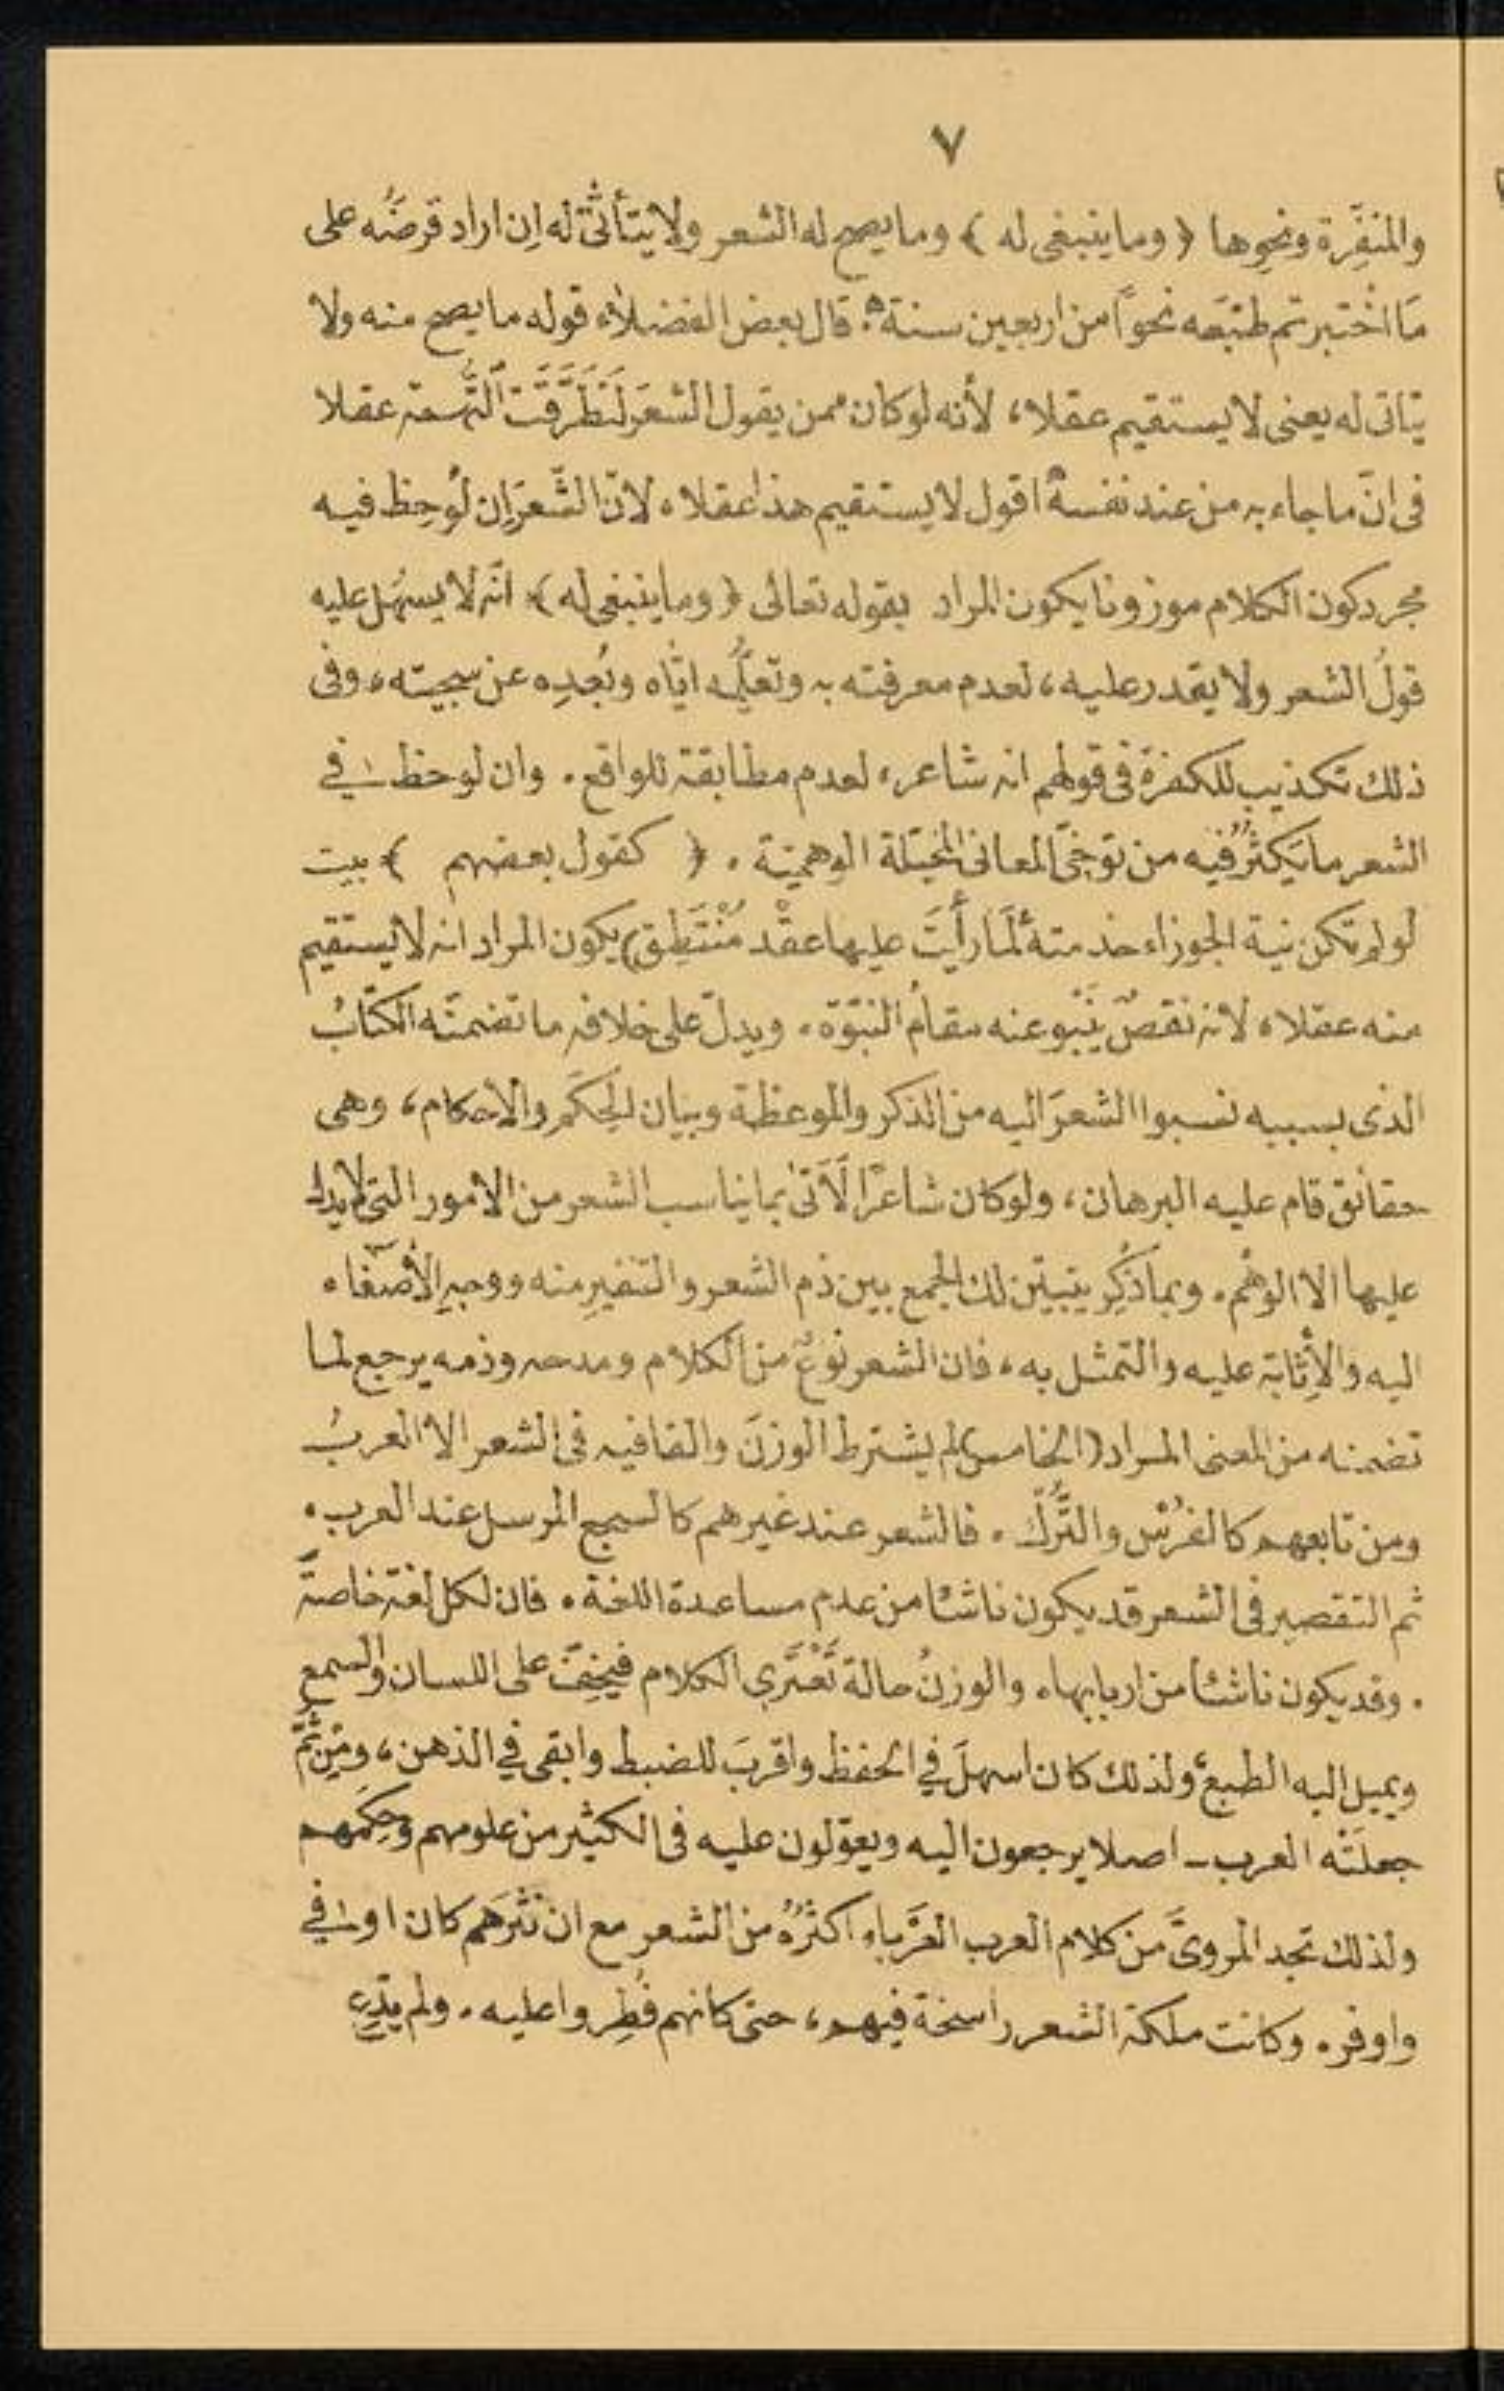 ٧
والمنفِّرة ونحوها ﴿ وما ينبغى له ﴾ وما يصح له الشعر ولا يتأتّى له اِن اراد قرضَه على
مَا اخْتبرتم طبَعه نحواً من اربعين سنة ؞ قال بعض الفضلاء قوله ما يصح منه ولا
يتاتى له يعنى لا يستقيم عقلا، لأنه لو كان ممن يقول الشعَر لَتَطَرَّقَتَ التُّهمة عقلا
فى انّ ما جاء به من عند نفسه اقول لا يستقيم هذا عقلا، لانّ الشّعرَ اِن لُوحِظ فيه
مجرد كون الكلام موزونا يكون المراد بقوله تعالى ﴿ وما ينبغى له ﴾ انّه لا يسهُل عليه
قولُ الشعر ولا يقدر عليه، لعدم معرفته به وتعلُّمه ايّاه وبُعدِه عن سجيته، وفى
ذلك تكذيب للكفرة فى قولهم انه شاعر، لعدم مطابقة للواقع. وان لوحظ فى
الشعر ما يَكثُرُ فيه من توخّى المعانى المخيّلة الوهميّة. ﴿ كقول بعضهم ﴾ بيت
لو لم تكن نية الجوزاء خدمته لَمَا رأَيتَ عليها عقْد مُنْتَطِقِ) يكون المراد انه لا يستقيم
منه عقلا، لانه نقصٌ يَنْبو عنه مقامُ النبوّة. ويدلّ على خلافه ما تضمنَه الكتابُ
الذى بسببه نسبوا الشعرَ اليه من الذكر والموعظة وبيان الحِكَم والاحكام، وهى
حقائق قام عليه البرهان، ولو كان شاعرًا لَاَتىٰ بما يناسب الشعر من الامور التى لا يدل
عليها الا الوهْم. وبما ذُكِر يتبيّن لك الجمع بين ذم الشعر والتنفيرِ منه ووجهِ الأصغاء
اليه والأِثابة عليه والتمثل به، فان الشعر نوعٌ من الكلام ومدحه وذمه يرجع لما
تضمنه من المعنى المراد (الخامس) لم يشترط الوزنَ والقافيه فى الشعر الا العربُ
ومن تابعهم كالفُرْس والتُّرْك. فالشعر عند غيرهم كالسجع المرسل عند العرب.
ثم التقصير فى الشعر قد يكون ناشئا من عدم مساعدة اللغة. فان لكل لغة خاصةً
. وقد يكون ناشئا من اربابها، والوزنُ حالة تَعْتَرى الكلام فيخِفّ على اللسان والسمع
ويميل اليه الطبع، ولذلك كان اسهلَ في الحفظ واقربَ للضبط وابقى في الذهن، ومِن ثَمَّ
جعلَتْه العرب - اصلا يرجعون اليه ويعوّلون عليه فى الكثير من علومهم وحِكَمهم
ولذلك تجد المروىَّ من كلام العرب العَرْباءِ اكثرُهُ من الشعر مع ان نثرَهم كان اوفى
واوفر. وكانت ملكة الشعر راسخة فيهم، حتى كانهم فُطِروا عليه. ولم يدّعِ